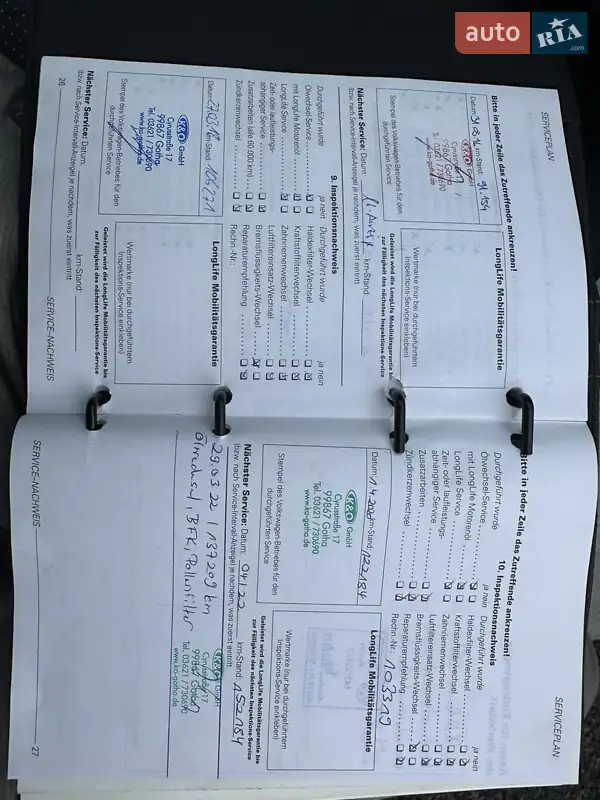 auto RIA .com
SERVICEPLAN
Bitte in jeder Zeile das Zutreffende ankreuzen!
Datum: km-Stand: 91.154
K&O GmbH
Cyrusstraße 17
99867 Gotha
Tel. 03621 / 730690
www.ko-gotha.de
Stempel des Volkswagen-Betriebes für den
durchgeführten Service
LongLife Mobilitätsgarantie
Wertmarke (nur bei durchgeführtem
Inspektions-Service einkleben)
Nächster Service: Datum: km-Stand:
(bzw. nach Service-Intervall-Anzeige) je nachdem, was zuerst eintritt
Geleistet wird die LongLife Mobilitätsgarantie bis
zur Fälligkeit des nächsten Inspektions-Service
9. Inspektionsnachweis
Durchgeführt wurde ja nein
Ölwechsel-Service
mit LongLife Motorenöl
LongLife Service
Zeit- oder laufleistungs-
abhängiger Service
Zusatzarbeiten (alle 60.000 km)
Zündkerzenwechsel
Durchgeführt wurde ja nein
Haldexfilter-Wechsel
Kraftstofffilterwechsel
Zahnriemenwechsel
Luftfiltereinsatz-Wechsel
Bremsflüssigkeits-Wechsel
Reparaturempfehlung
Rechn.-Nr.:
Datum: km-Stand: 106271
K&O GmbH
Cyrusstraße 17
99867 Gotha
Tel. 03621 / 730690
www.ko-gotha.de
Stempel des Volkswagen-Betriebes für den
durchgeführten Service
LongLife Mobilitätsgarantie
Wertmarke (nur bei durchgeführtem
Inspektions-Service einkleben)
Nächster Service: Datum: km-Stand:
(bzw. nach Service-Intervall-Anzeige) je nachdem, was zuerst eintritt
Geleistet wird die LongLife Mobilitätsgarantie bis
zur Fälligkeit des nächsten Inspektions-Service
26 SERVICE-NACHWEIS
SERVICEPLAN
Bitte in jeder Zeile das Zutreffende ankreuzen!
10. Inspektionsnachweis
Durchgeführt wurde ja nein
Ölwechsel-Service
mit LongLife Motorenöl
LongLife Service
Zeit- oder laufleistungs-
abhängiger Service
Zusatzarbeiten
Zündkerzenwechsel
Durchgeführt wurde ja nein
Haldexfilter-Wechsel
Kraftstofffilterwechsel
Zahnriemenwechsel
Luftfiltereinsatz-Wechsel
Bremsflüssigkeits-Wechsel
Reparaturempfehlung
Rechn.-Nr.: 103319
Datum: 1.4.2020 km-Stand: 122184
K&O GmbH
Cyrusstraße 17
99867 Gotha
Tel. 03621 / 730690
www.ko-gotha.de
Stempel des Volkswagen-Betriebes für den
durchgeführten Service
LongLife Mobilitätsgarantie
Wertmarke (nur bei durchgeführtem
Inspektions-Service einkleben)
Nächster Service: Datum: 04/22 km-Stand: 152184
(bzw. nach Service-Intervall-Anzeige) je nachdem, was zuerst eintritt
Geleistet wird die LongLife Mobilitätsgarantie bis
zur Fälligkeit des nächsten Inspektions-Service
29.03.22 / 137209 km
Ölwechsel, BFK, Pollenfilter
K&O GmbH
Cyrusstraße 17
99867 Gotha
Tel. 03621 / 730690
www.ko-gotha.de
SERVICE-NACHWEIS 27